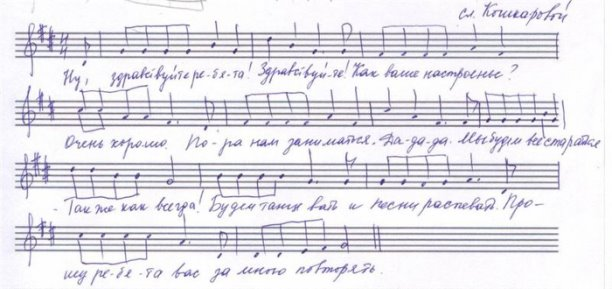 сл. Кошкаровой
Ну, здравствуйте ре-бя-та! Здравствуй-те! Как ваше настроенье?
Очень хорошо. По-ра нам заниматься. Да-да-да. Мы будем все стараться
- Так же как всегда! Будем танце вать и песни распевать. Про-
шу ре-бя-та вас за мною повторять.